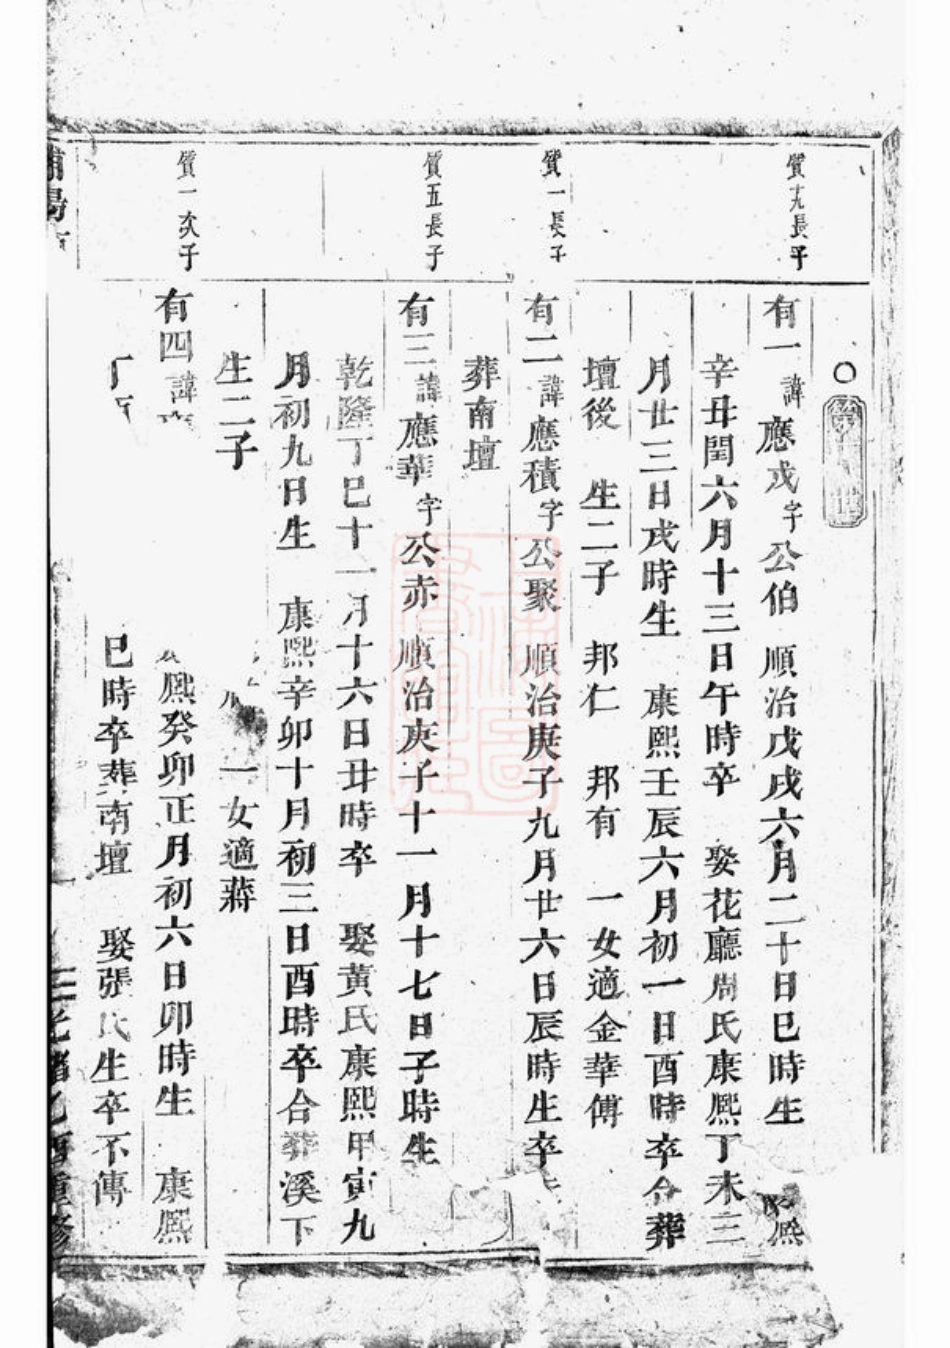 質九長子
有一諱應戍字公伯 順治戊戌六月二十日巳時生 康熙
辛丑閏六月十三日午時卒 娶花廳周氏康熙丁未三
月廿三日戌時生 康熙壬辰六月初一日酉時卒合葬
壇後 生二子 邦仁 邦有 一女適金華傅
質一長子
有二諱應積字公聚 順治庚子九月廿六日辰時生卒
葬南壇
質五長子
有三諱應華字公赤 順治庚子十一月十七日子時生
乾隆丁巳十一月十六日丑時卒 娶黃氏康熙甲寅九
月初九日生 康熙辛卯十月初三日酉時卒合葬溪下
生二子 一女適蔣
質一次子
有四諱 熙癸卯正月初六日卯時生 康熙
丁 巳時卒葬南壇 娶張氏生卒不傳
光緒乙酉重修